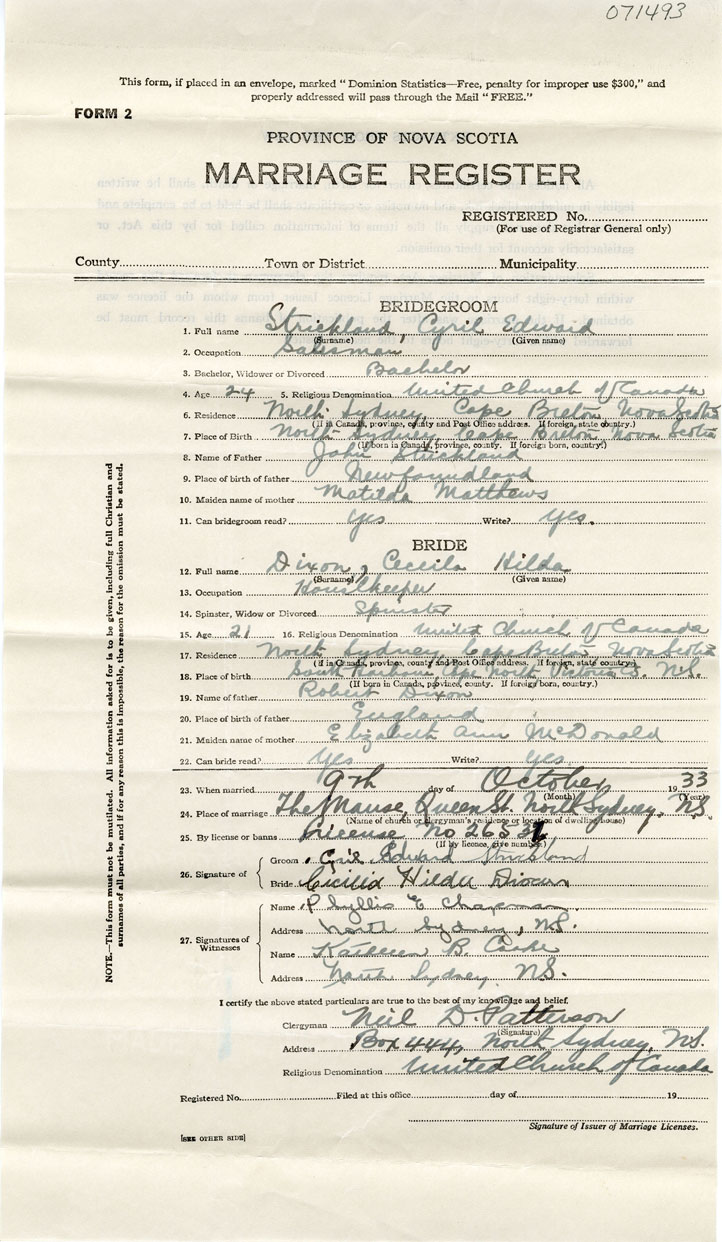 071493
This form, if placed in an envelope, marked "Dominion Statistics—Free, penalty for improper use $300," and
properly addressed will pass through the Mail "FREE."
FORM 2
PROVINCE OF NOVA SCOTIA
MARRIAGE REGISTER
REGISTERED No.
(For use of Registrar General only)
County Town or District Municipality
BRIDEGROOM
1. Full name Strickland, Cyril Edward
(Surname) (Given name)
2. Occupation Salesman
3. Bachelor, Widower or Divorced Bachelor
4. Age 24 5. Religious Denomination United Church of Canada
6. Residence North Sydney, Cape Breton Nova Scotia
(If in Canada, province, county and Post Office address. If foreign, state country.)
7. Place of Birth North Sydney Cape Breton Nova Scotia
(If born in Canada, province, county. If foreign born, country.)
8. Name of Father John Strickland
9. Place of birth of father Newfoundland
10. Maiden name of mother Matilda Matthews
11. Can bridegroom read? Yes Write? Yes.
BRIDE
12. Full name Dixon, Cecila Hilda
(Surname) (Given name)
13. Occupation Houslkeeper
14. Spinster, Widow or Divorced Spinster
15. Age 21 16. Religious Denomination United Church of Canada
17. Residence North Sydney, Cape Breton Nova Scotia
(If in Canada, province, county and Post Office address. If foreign, state country)
18. Place of birth South N.S.
(If born in Canada, province, county. If foreign born, country.)
19. Name of father Robert Dixon
20. Place of birth of father England
21. Maiden name of mother Elizabeth Ann McDonald
22. Can bride read? Yes Write? Yes
23. When married 9th day of October 1933
(Month) (Year)
24. Place of marriage The Manse, Queen St. North Sydney, N.S.
(Name of church or clergyman's residence or location of dwelling house)
25. By license or banns License No 26531
(If by licence, give number)
26. Signature of
Groom Cyril Edward Strickland
Bride Cecilia Hilda Dixon
27. Signatures of Witnesses
Name Phyllis E Chapman
Address North Sydney, N.S.
Name Kathleen B. Cooke
Address North Sydney N.S.
I certify the above stated particulars are true to the best of my knowledge and belief.
Clergyman Neil D. Patterson
(Signature)
Address Box 444, North Sydney, N.S.
Religious Denomination United Church of Canada
Registered No. Filed at this office day of 19
Signature of Issuer of Marriage Licenses.
[SEE OTHER SIDE]
NOTE.—This form must not be mutilated. All information asked for is to be given, including full Christian and
surnames of all parties, and if for any reason this is impossible, the reason for the omission must be stated.